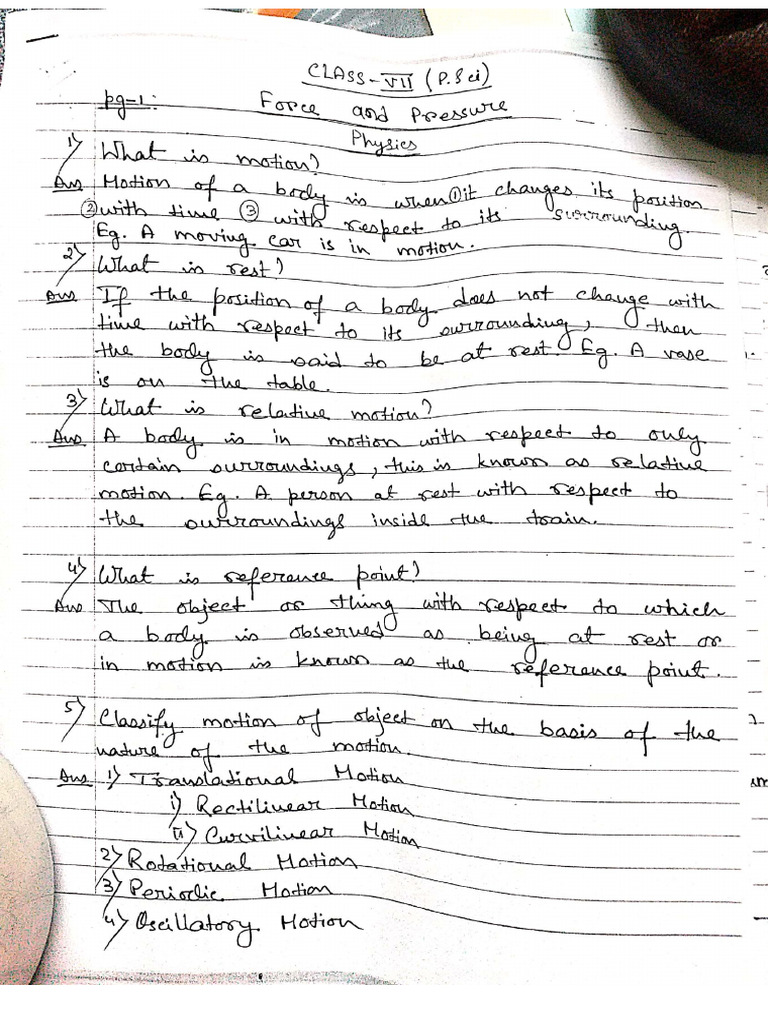 CLASS-VII (P.Sci)
pg-1: Force and Pressure
Physics
1) What is motion?
Ans Motion of a body is when ① it changes its position
② with time ③ with respect to its surrounding.
Eg. A moving car is in motion.
2) What is rest?
Ans If the position of a body does not change with
time with respect to its surrounding, then
the body is said to be at rest. Eg. A vase
is on the table.
3) What is relative motion?
Ans A body is in motion with respect to only
certain surroundings, this is known as relative
motion. Eg. A person at rest with respect to
the surroundings inside the train.
4) What is reference point?
Ans The object or thing with respect to which
a body is observed as being at rest or
in motion is known as the reference point.
5) Classify motion of object on the basis of the
nature of the motion.
Ans 1) Translational Motion
i) Rectilinear Motion
ii) Curvilinear Motion
2) Rotational Motion
3) Periodic Motion
4) Oscillatory Motion